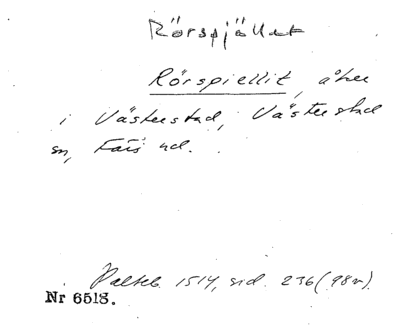 Rörspjället
Rörspiellit, åker
i Västerstad, Västerstad
sn, Färs hd.
Palteb. 1514, sid. 236 (98v).
Nr 6518.